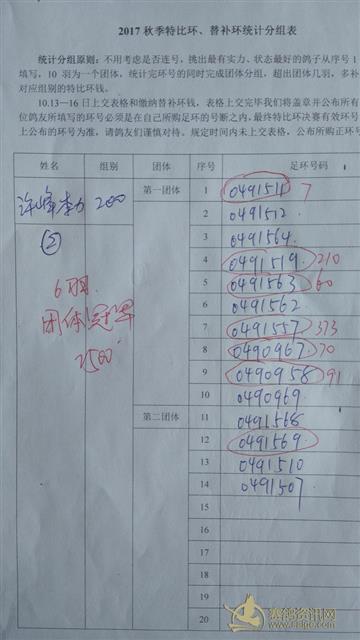 2017 秋季特比环、替补环统计分组表
统计分组原则：不用考虑是否连号，挑出最有实力、状态最好的鸽子从序号 1
填写，10 羽为一个团体，统计完环号的同时完成团体分组，超出团体几羽，多补
对应组别的特比环钱。
10.13—16 日上交表格和缴纳替补环钱，表格上交完毕我们将盖章并公布所有
位鸽友所填写的环号必须是在自己所购足环的号断之内，最终特比环决赛有效环号
上公布的环号为准，请鸽友们谨慎对待。规定时间内未上交表格，公布所购正环号
姓名 组别 团体 序号 足环号码
许峰李力 200 第一团体 1 0491511 7
② 2 0491512
3 0491564
4 0491519 210
5 0491563 60
6羽 6 0491562
团体冠军 7 0491557 373
2500 8 0490967 70
9 0490958 91
10 0490969
第二团体 11 0491568
12 0491569
13 0491510
14 0491507
15
16
17
18
19
20
赛鸽资讯网